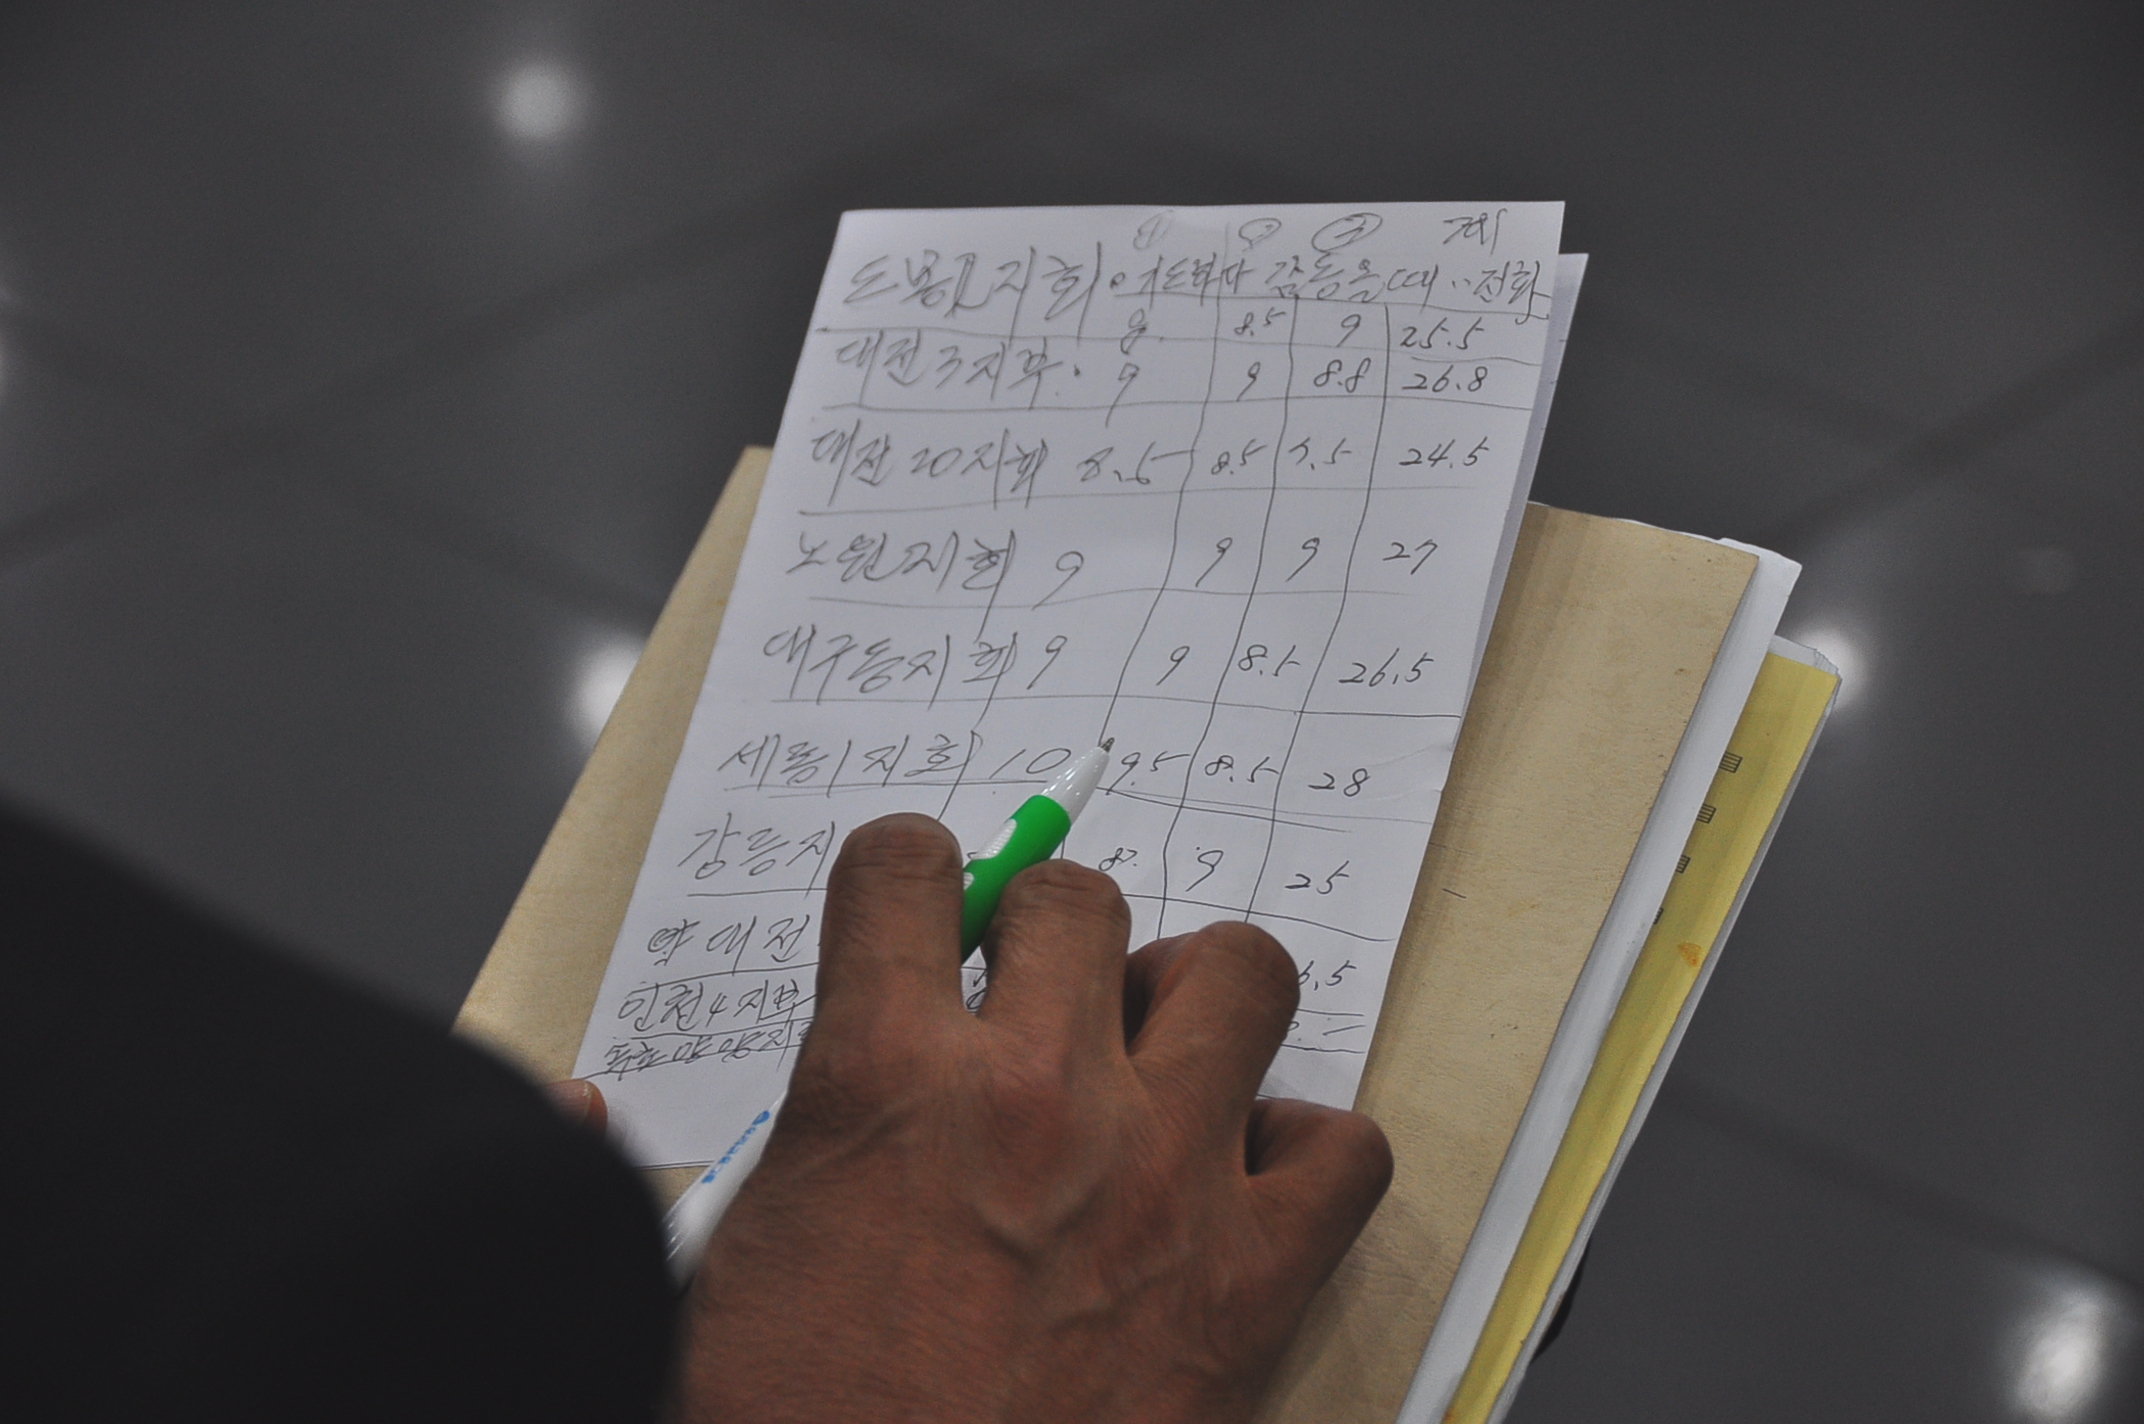 ① ② ③ 계
도봉 지회
8 8.5 9 25.5
대전 3지부 9 9 8.8 26.8
대전 20지회 8.5 8.5 7.5 24.5
노원지회 9 9 9 27
대구동지회 9 9 8.5 26.5
세종1지회 10 9.5 8.5 28
강릉지 8 9 25
대전 6.5
인천4지부